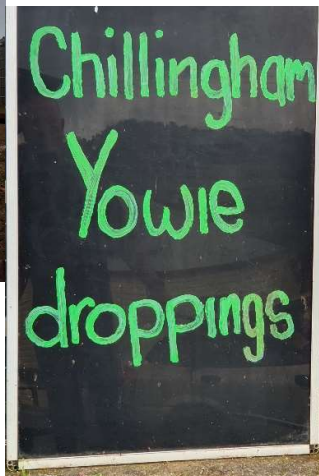 Chillingham
Yowie
droppings